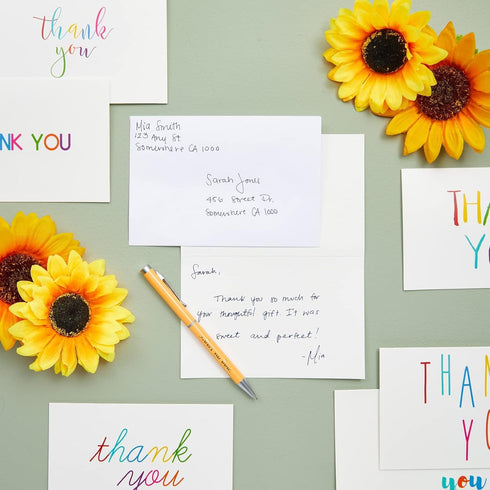 thank
you
NK YOU
Mia Smith
123 Any St
Somewhere CA 1000
Sarah Jones
456 Street Dr.
Somewhere CA 1000
THA
Y
Sarah,
Thank you so much for
your thoughtful gift. It was
sweet and perfect!
-Mia
THAN
YO
thank
you
you